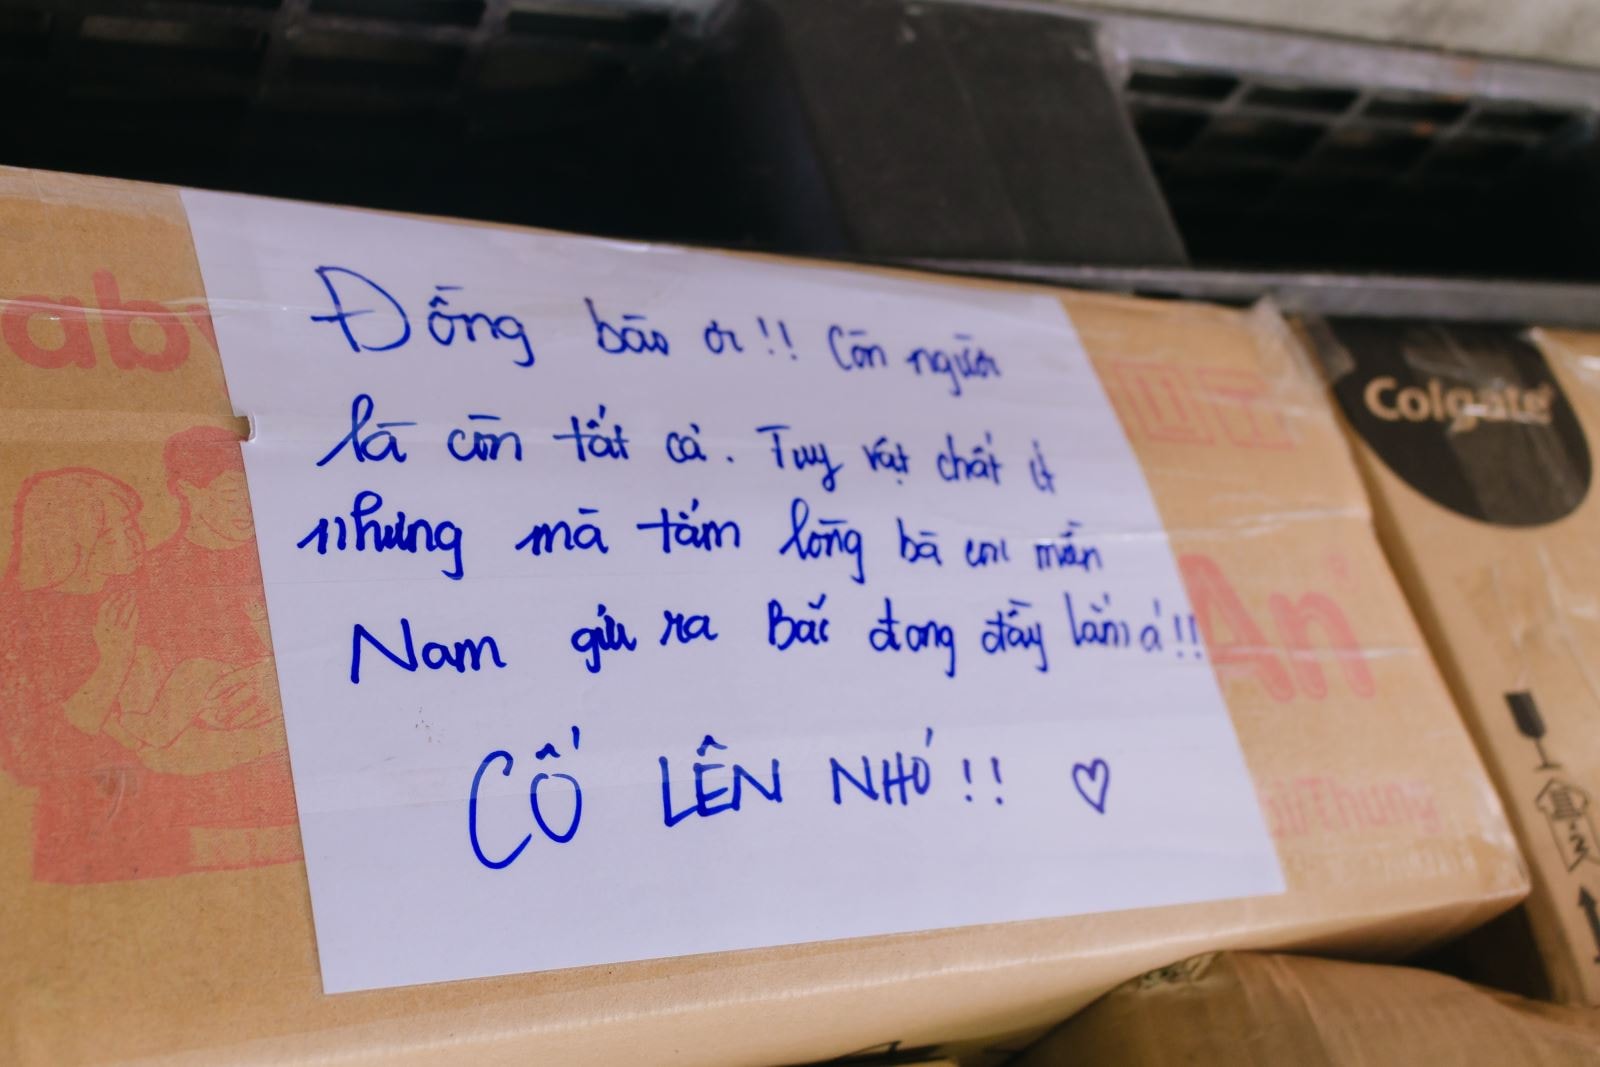 Đồng bào ơi!! Còn người
là còn tất cả. Tuy vật chất ít
nhưng mà tấm lòng bà con miền
Nam gửi ra Bắc đong đầy lắm á!!
CỐ LÊN NHÓ!! ♡
Colgate
An